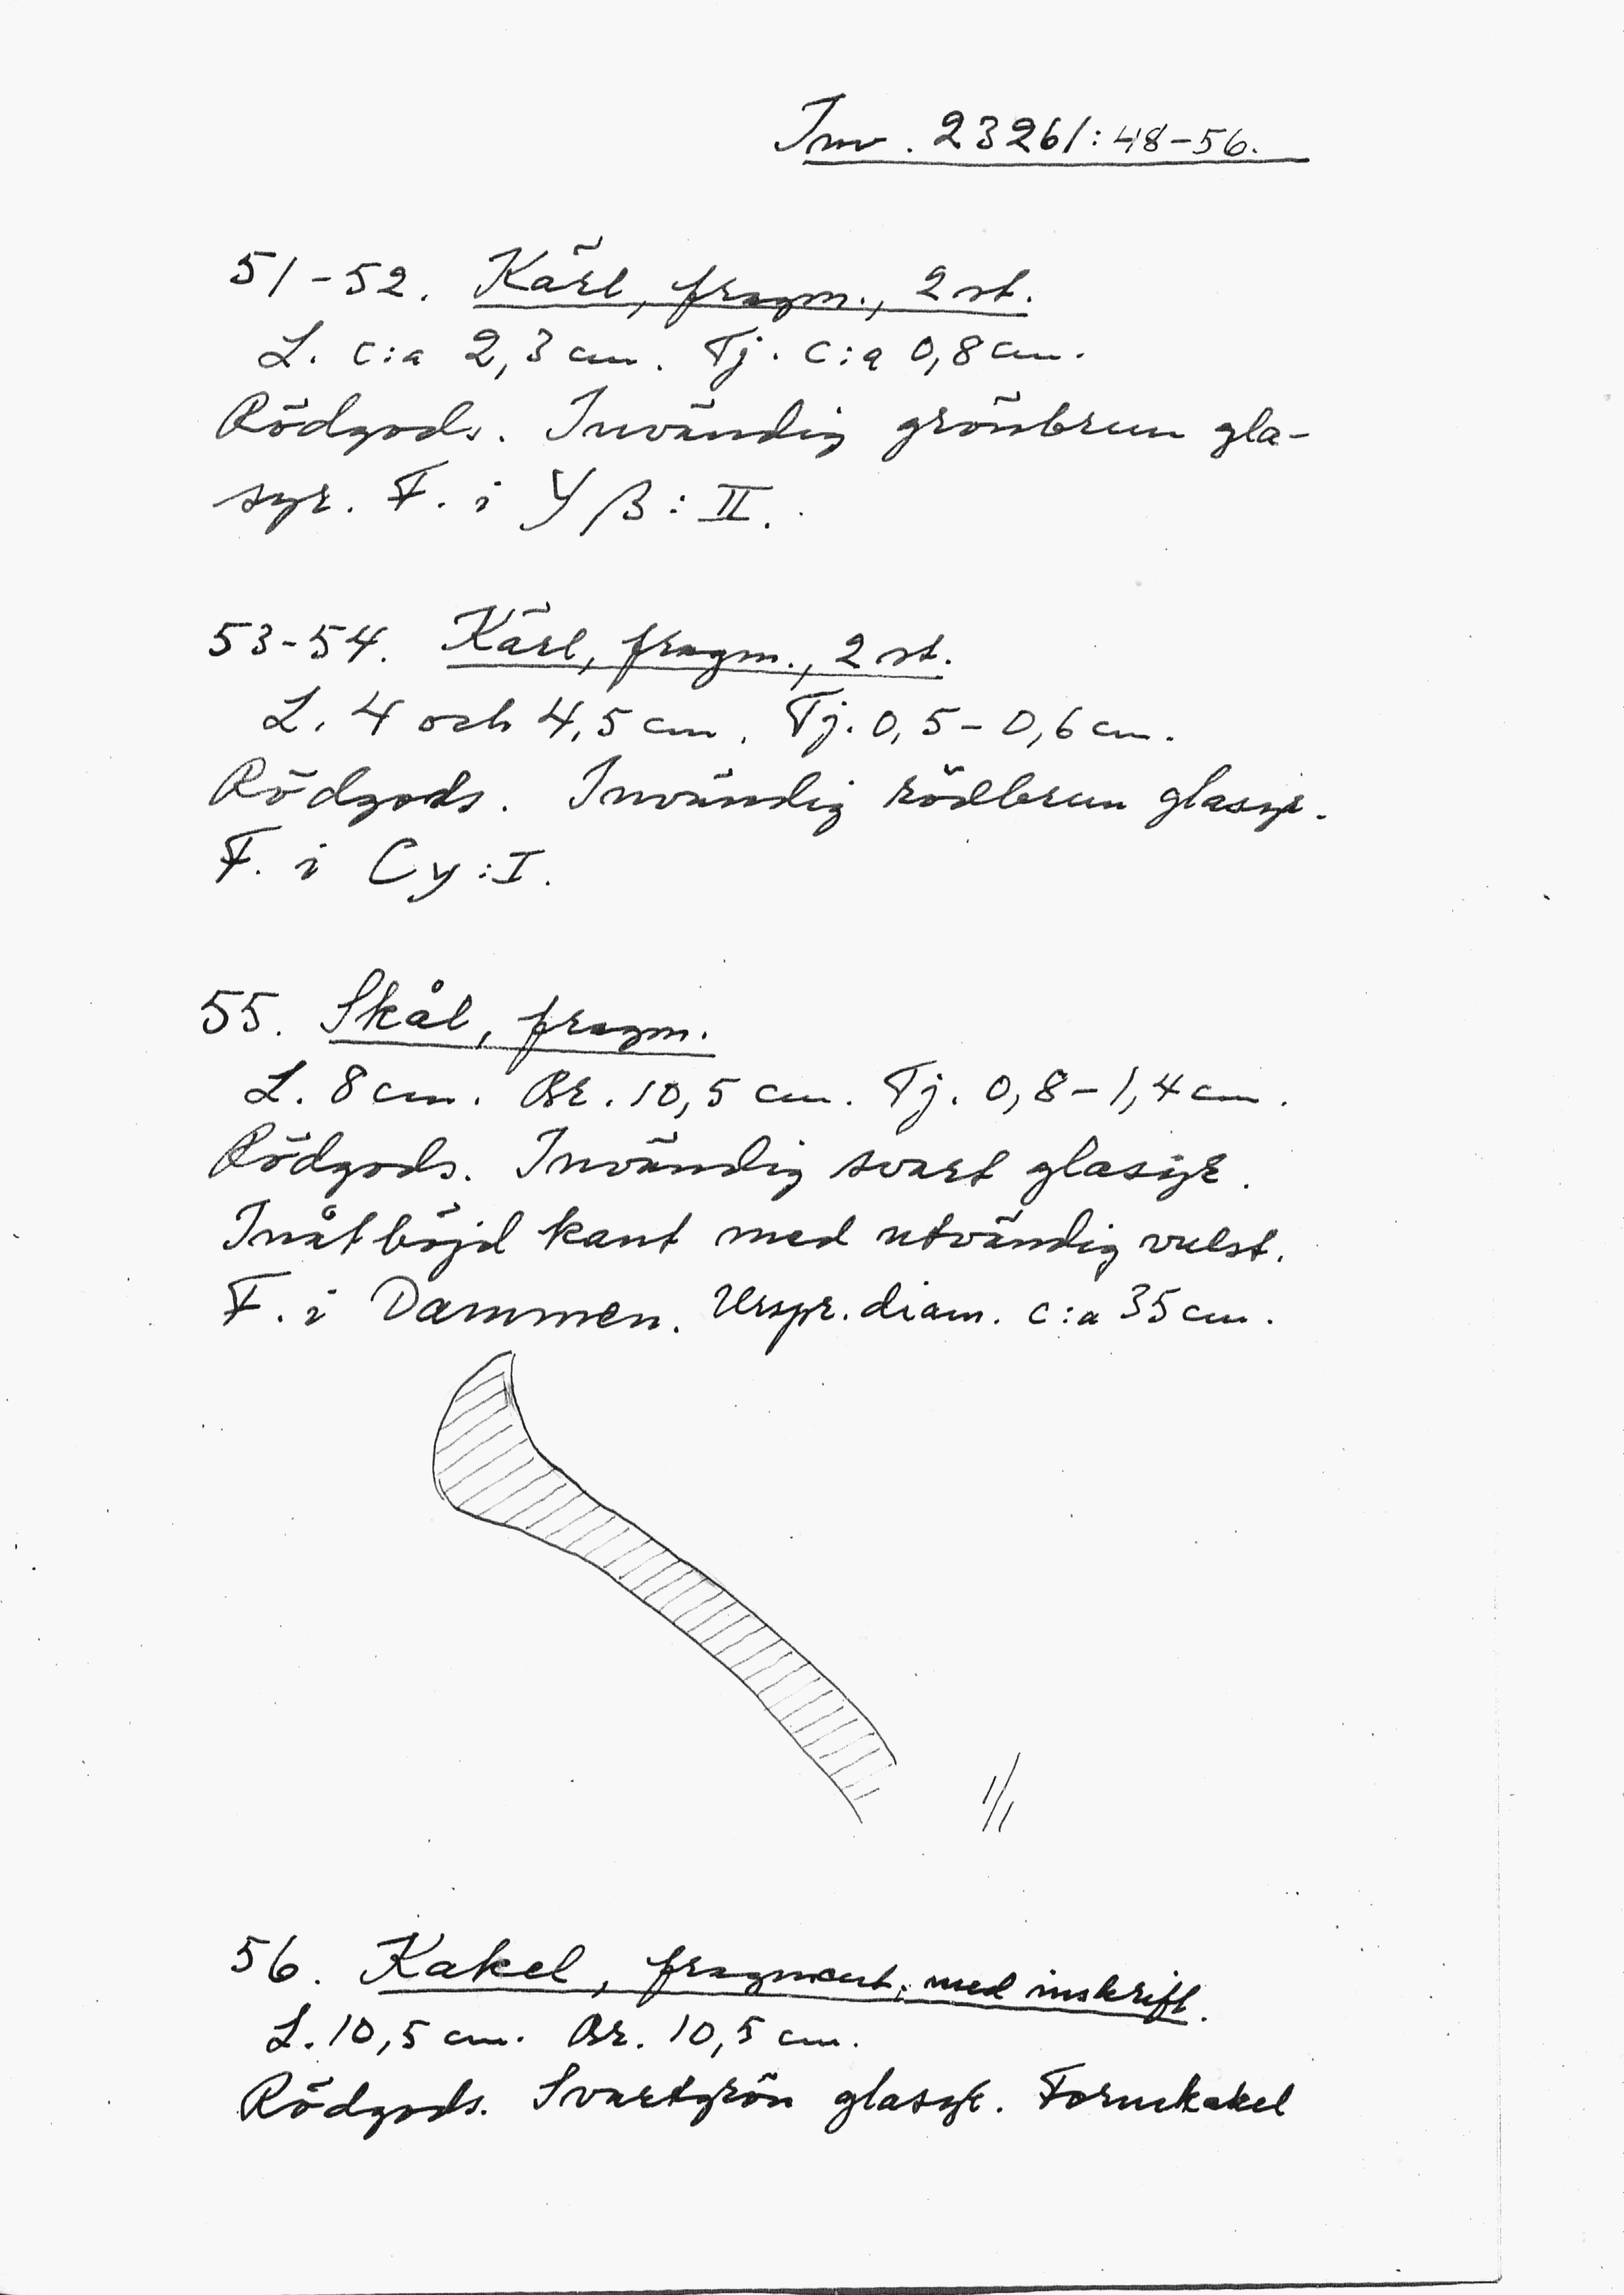 Inv. 23261:48-56.
51-52. Kärl, fragm., 2 st.
L. c:a 2,3 cm. Tj. c:a 0,8 cm.
Rödgods. Invändig grönbrun gla-
syr. F. i Yβ:II.
53-54. Kärl, fragm., 2 st.
L. 4 och 4,5 cm. Tj. 0,5-0,6 cm.
Rödgods. Invändig rödbrun glasyr.
F. i Cy:I.
55. Skål, fragm.
L. 8 cm. Br. 10,5 cm. Tj. 0,8-1,4 cm.
Rödgods. Invändig svart glasyr.
Inåtböjd kant med utvändig vulst.
F. i Dammen. Urspr. diam. c:a 35 cm.
1/1
56. Kakel, fragment, med inskrift.
L. 10,5 cm. Br. 10,5 cm.
Rödgods. Svartgrön glasyr. Formkakel